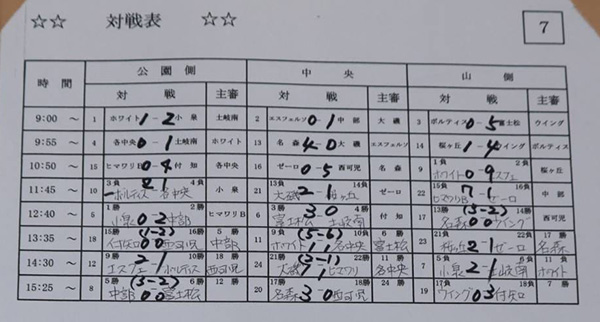 ☆☆ 対戦表 ☆☆ 7
時間 公園側 中央 山側
対戦 主審 対戦 主審 対戦 主審
9:00 ～ 1 ホワイト 1-2 小泉 土岐南 2 エスフェルソ 0-1 中部 大磯 3 ボルティス 0-5 富士松 ウイング
9:55 ～ 4 各中央 0-1 土岐南 ホワイト 13 名森 4-0 大磯 エスフェルソ 14 桜ヶ丘 1-4 ウイング ボルティス
10:50 ～ 15 ヒマワリB 0-4 付知 各中央 16 ゼーロ 0-5 西可児 名森 9 1負 ホワイト 0-9 2負 スフェ 桜ヶ丘
11:45 ～ 10 3負 ボルティス 2-1 4負 各中央 小泉 21 13負 大磯 2-1 14負 桜ヶ丘 ゼーロ 22 15負 ヒマワリB 7-1 16負 ゼーロ 中部
12:40 ～ 5 1勝 小泉 0 2 2勝 中部 ヒマワリB 6 3勝 富士松 3 0 4勝 土岐南 付知 17 13勝 名森 (3-2) 0 0 14勝 ウイング 西可児
13:35 ～ 18 15勝 付知 (1-2) 0 0 16勝 西可児 5勝 中部 11 9負 ホワイト (5-6) 1 1 10負 各中央 6勝 富士松 23 21負 桜ヶ丘 2-1 22負 ゼーロ 17勝 名森
14:30 ～ 12 9勝 エスフェ 2-1 10勝 ボルティス 18勝 西可児 24 21勝 大磯 (2-1) 1 1 22勝 ヒマワリ 11勝 各中央 7 5負 小泉 2-1 6負 土岐南 11負 ホワイト
15:25 ～ 8 5勝 中部 (3-2) 0 0 6勝 富士松 12勝 20 17勝 名森 3-0 18勝 西可児 24勝 19 17負 ウイング 0 3 18負 付知 7勝